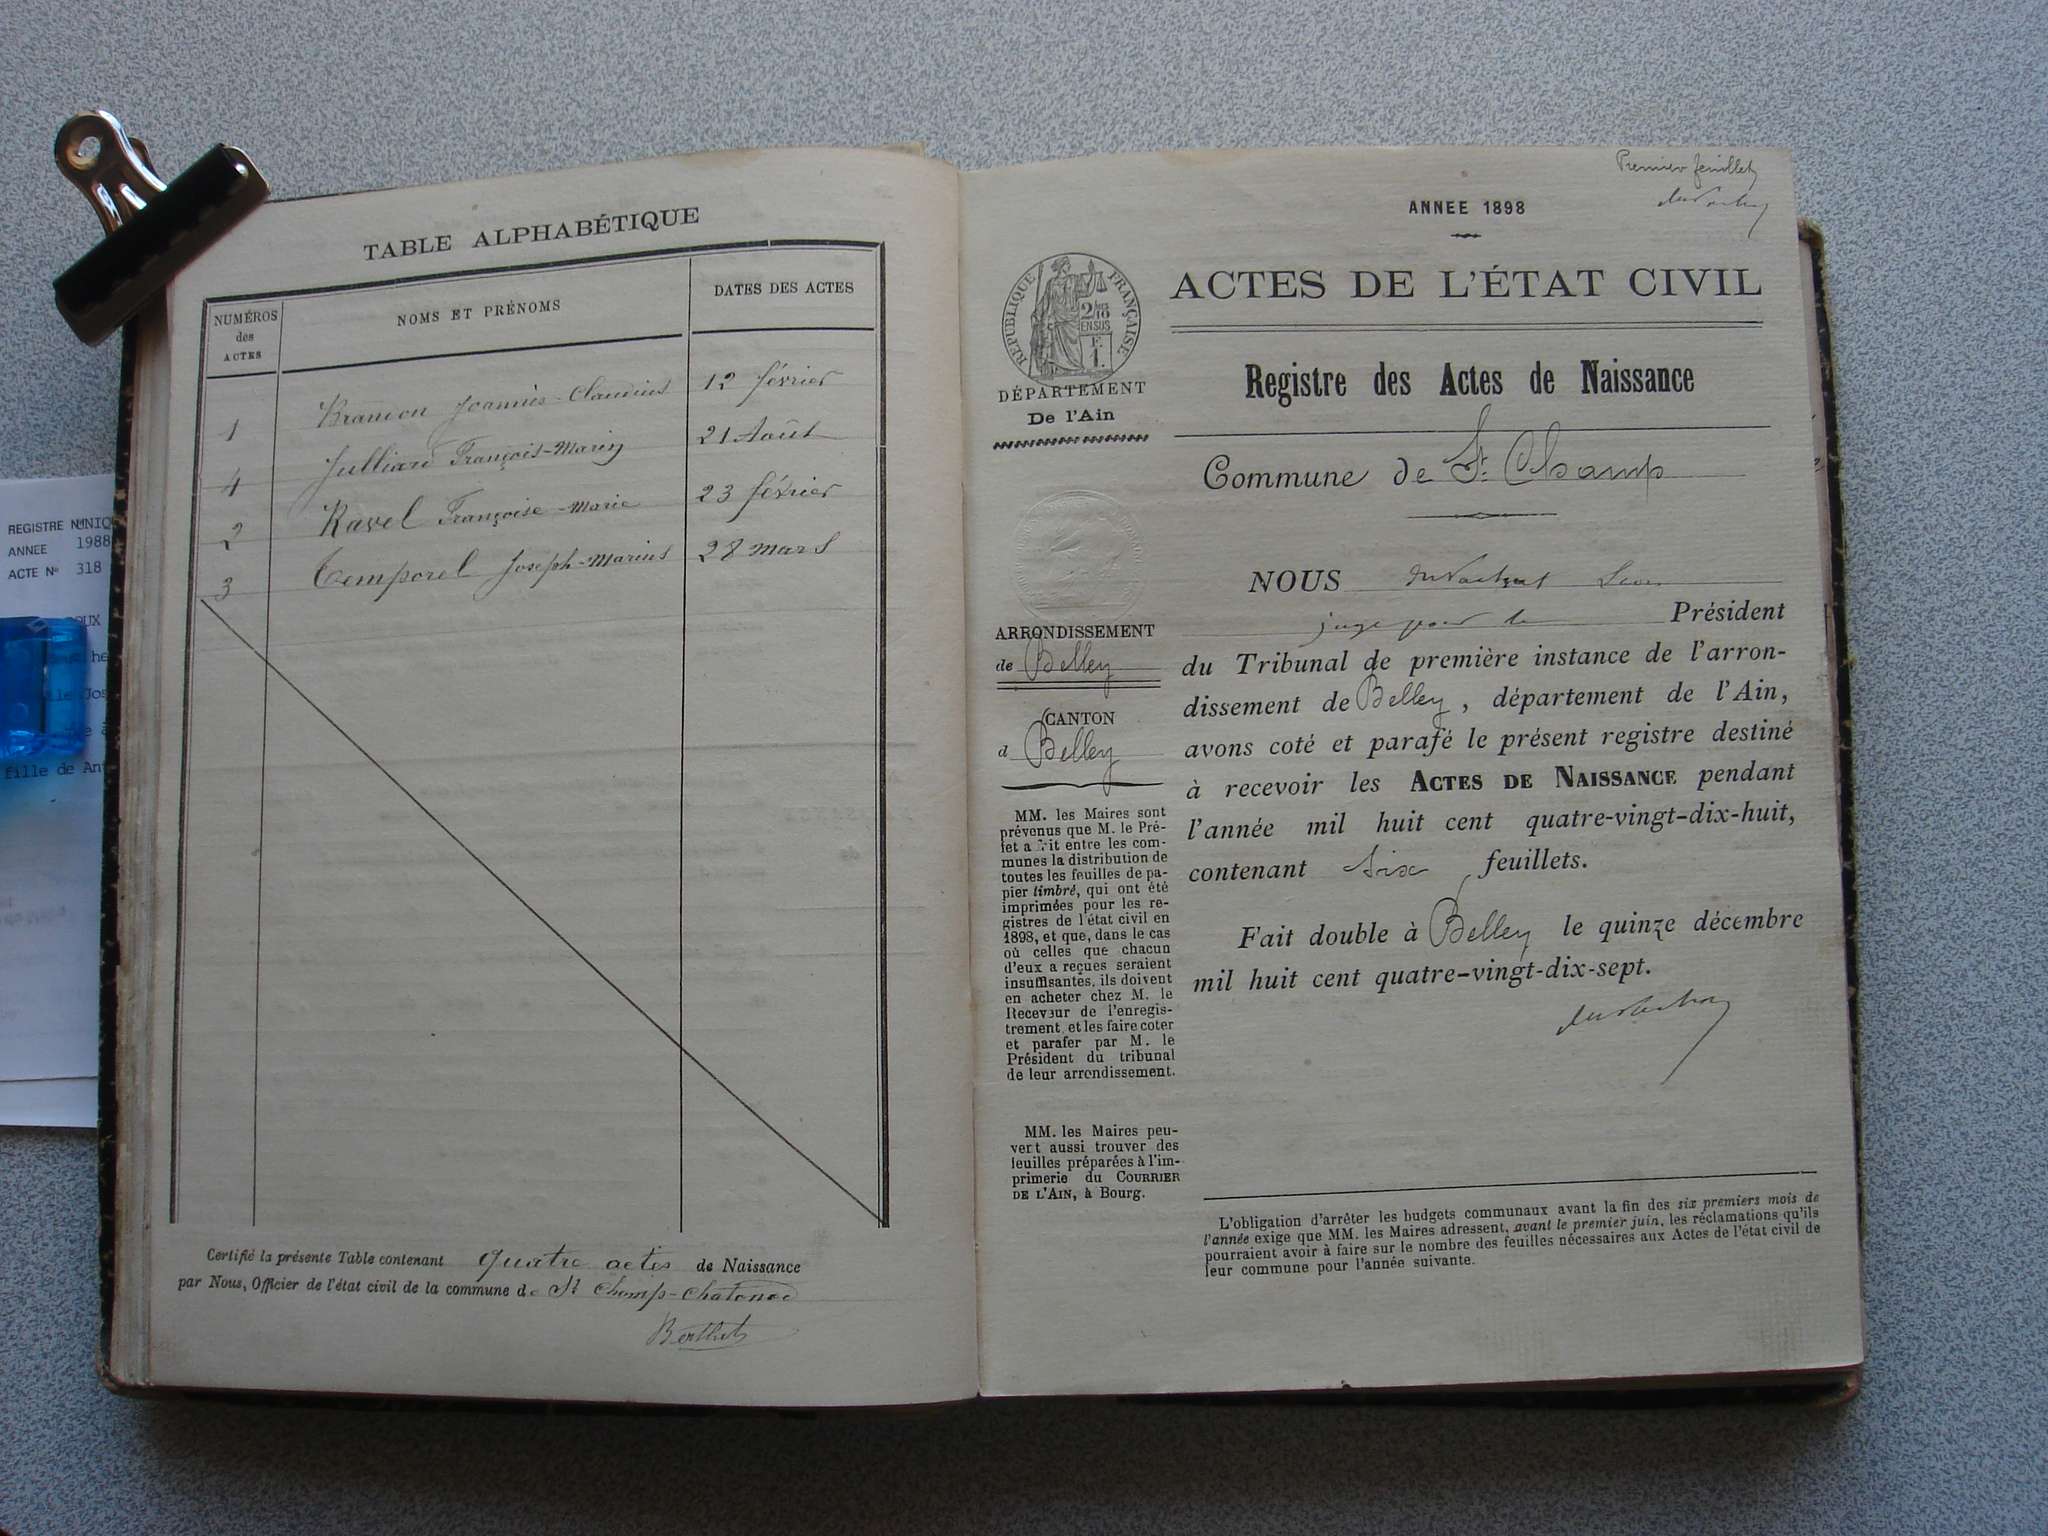 TABLE ALPHABÉTIQUE
NUMÉROS des ACTES
NOMS ET PRÉNOMS
DATES DES ACTES
1 Joannès-Claudius 12 février
4 Jullian François-Marie 21 Août
2 Ravel Françoise-Marie 23 février
3 Temporel Joseph-Marius 28 mars
Certifié la présente Table contenant quatre actes de Naissance
par Nous, Officier de l'état civil de la commune de St Champ-Chatonod
Berthet
REGISTRE
ANNEE 1988
ACTE No 318
fille de
Premier feuillet
ANNEE 1898
ACTES DE L'ÉTAT CIVIL
RÉPUBLIQUE FRANÇAISE
2/10 EN SUS
F. 1.
DÉPARTEMENT
De l'Ain
Registre des Actes de Naissance
Commune de St. Champ
ARRONDISSEMENT
de Belley
CANTON
d Belley
MM. les Maires sont
prévenus que M. le Pré-
fet a fait entre les com-
munes la distribution de
toutes les feuilles de pa-
pier timbré, qui ont été
imprimées pour les re-
gistres de l'état civil en
1898, et que, dans le cas
où celles que chacun
d'eux a reçues seraient
insuffisantes, ils doivent
en acheter chez M. le
Receveur de l'enregis-
trement et les faire coter
et parafer par M. le
Président du tribunal
de leur arrondissement.
MM. les Maires peu-
vent aussi trouver des
feuilles préparées à l'im-
primerie du COURRIER
DE L'AIN, à Bourg.
NOUS
juge pour le Président
du Tribunal de première instance de l'arron-
dissement de Belley, département de l'Ain,
avons coté et parafé le présent registre destiné
à recevoir les ACTES DE NAISSANCE pendant
l'année mil huit cent quatre-vingt-dix-huit,
contenant six feuillets.
Fait double à Belley le quinze décembre
mil huit cent quatre-vingt-dix-sept.
L'obligation d'arrêter les budgets communaux avant la fin des six premiers mois de
l'année exige que MM. les Maires adressent, avant le premier juin, les réclamations qu'ils
pourraient avoir à faire sur le nombre des feuilles nécessaires aux Actes de l'état civil de
leur commune pour l'année suivante.